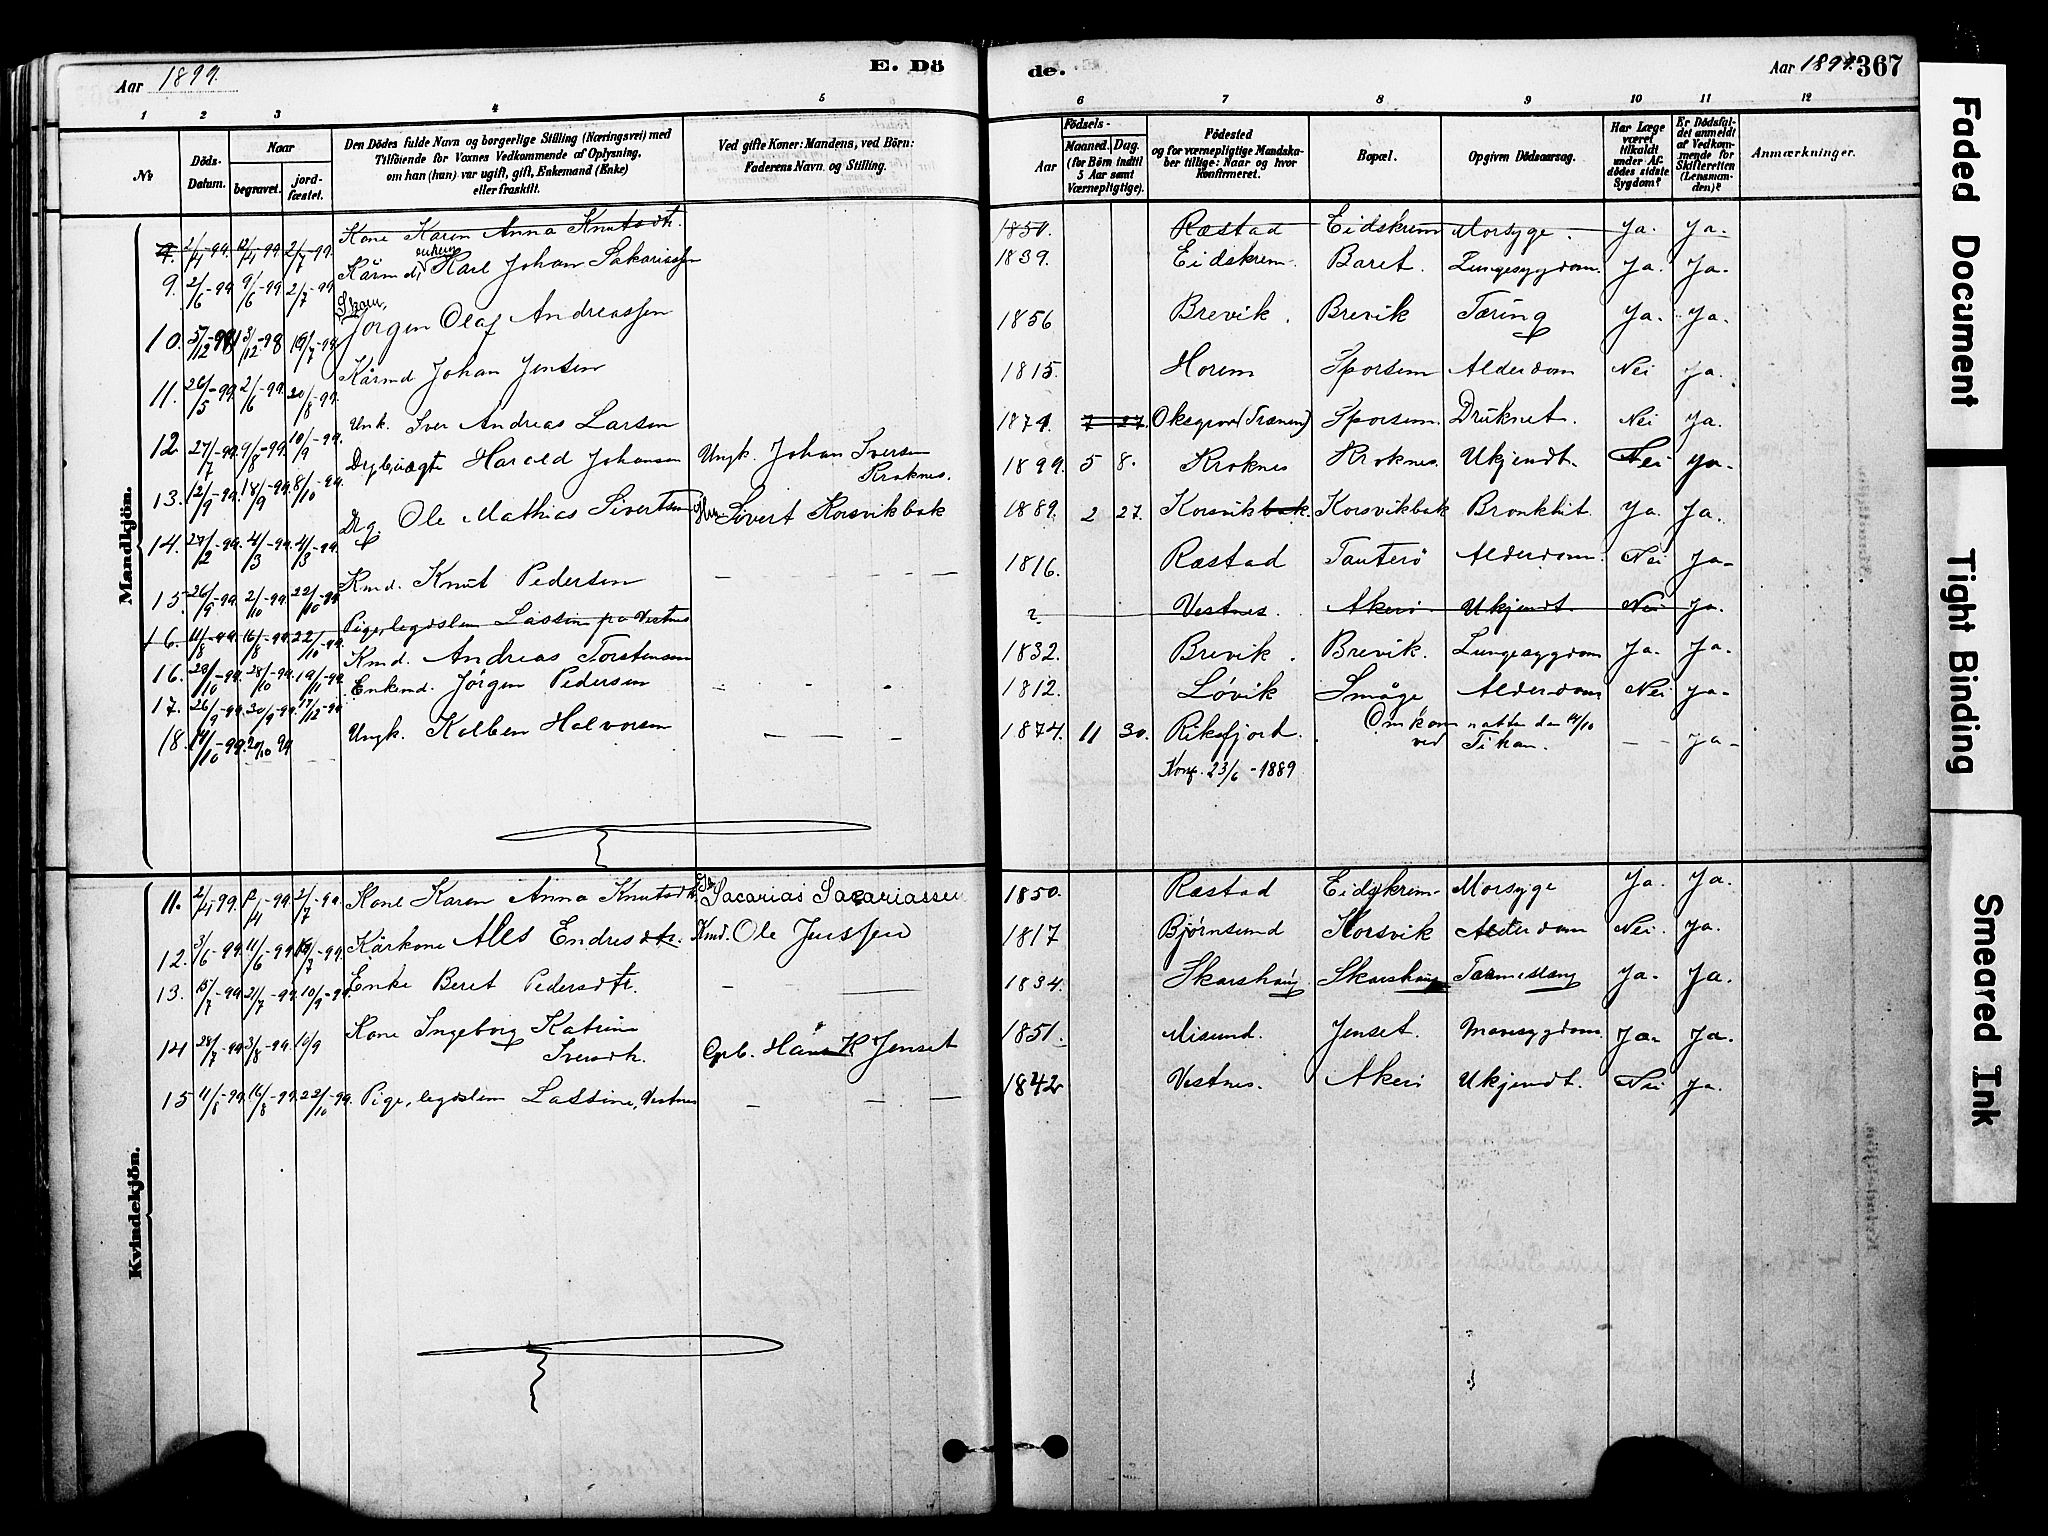 Aar 1899.
E. Dö
de.
Aar 1899.
367
1 2 3 4 5 6 7 8 9 10 11 12
No
Döds-Datum.
Naar
begravet.
jord-fæstet.
Den Dödes fulde Navn og borgerlige Stilling (Næringsvei) med Tilföiende for Voxnes Vedkommende af Oplysning, om han (hun) var ugift, gift, Enkemand (Enke) eller fraskilt.
Ved gifte Koner: Mandens, ved Börn: Faderens Navn og Stilling.
Födsels-
Aar
Maaned. Dag.
(for Börn indtil 5 Aar samt Værnepligtige).
Födested og for værnepligtige Mandskaber tillige: Naar og hvor Konfirmeret.
Bopæl.
Opgiven Dödsaarsag.
Har Læge været tilkaldt under Afdödes sidste Sygdom?
Er Dödsfaldet anmeldt af Vedkommende for Skifteretten (Lensmanden)?
Anmærkninger.
Mandkjön.
9. 2/4-99. 12/4-99. 2/7-99. Kone Karen Anna Knutsdtr. 1851. Ræstad Eidskrem Morsyge. Ja. Ja.
9. 2/6-99. 9/6-99. 2/7-99. Kårmd. Karl Johan Sakariassen 1839. Eidskrem. Baret. Lungesygdom. Ja. Ja.
10. 5/12-98. 13/12-98 Jørgen Olaf Andreassen 1856 Brevik. Brevik Tæring Ja. Ja.
11. 26/5-99. 2/6-99. 20/8-99. Kårmd Johan Jensen 1815. Horem Sporsem Alderdom Nei Ja.
12 27/7-99. 9/8-99. 10/9-99. Unk. Iver Andreas Larsen 1874. 7 27. Sporsem. Druknet. Nei Ja.
13. 12/9-99. 18/9-99. 8/10-99. Harald Johansen Ungk. Johan Iversen Kroknes. 1899. 5 8. Kroknes Kroknes. Ukjendt. Nei Ja.
14. 4/3-99. 4/3-99. Drg. Ole Mathias Sivertsen Sivert Korsvikbak 1889. 2 27. Korsvikbak. Korsvikbak Bronkhit. Ja. Ja.
15. 26/9-99. 2/10-99. 22/10-99 Kmd. Knut Pedersen 1816. Ræstad Tauterö Alderdom. Nei Ja.
16. 11/8-99. 16/8-99. 22/10-99. Pige, legdslem Lassine fra Vestnes ? Vestnes. Akerö Ukjendt. Nei Ja.
16. 28/10-99. 19/11-99. Kmd. Andreas Torstensen 1832. Brevik. Brevik. Lungesygdom Ja. Ja.
17. 26/9-99. 30/9-99. 17/12-99 Enkemd. Jørgen Pedersen 1812. Løvik Småge Alderdom Nei Ja.
18. 14/10-99. 20/10 99 Ungk. Kolben Halvorsen 1874. 11 30. Riksfjord. Omkom natten den 14/10 ved Ja.
Konf. 23/6-1889
Kvindekjön.
11. 2/4-99. 2/7-99. Kone Karen Anna Knutsdtr. Sacarias Sacariassen 1850. Ræstad Eidskrem. Morsyge Ja. Ja.
12. 3/6-99. 11/6-99. Kårkone Ales Endresdtr. Kmd. Ole Jenssen 1817 Bjørnsund Korsvik Alderdom Nei. Ja.
13. 15/7-99. 21/7-99. 10/9-99. Enke Beret Pedersdtr. 1834. Skarshaug Skarshaug Tarmeslæng Ja. Ja.
14 28/7-99. 3/8-99. 10/9 Kone Ingeborg Katrine Iversdtr. Gpb. Hans K Jenset 1851. Misund. Jenset. Mavesygdom. Ja. Ja.
15 11/8-99. 16/8-99. 22/10-99. Pige, legdslem Lassine, Vestnes 1842 Vestnes. Akerö Ukjendt. Nei Ja.
Faded Document
Tight Binding
Smeared Ink